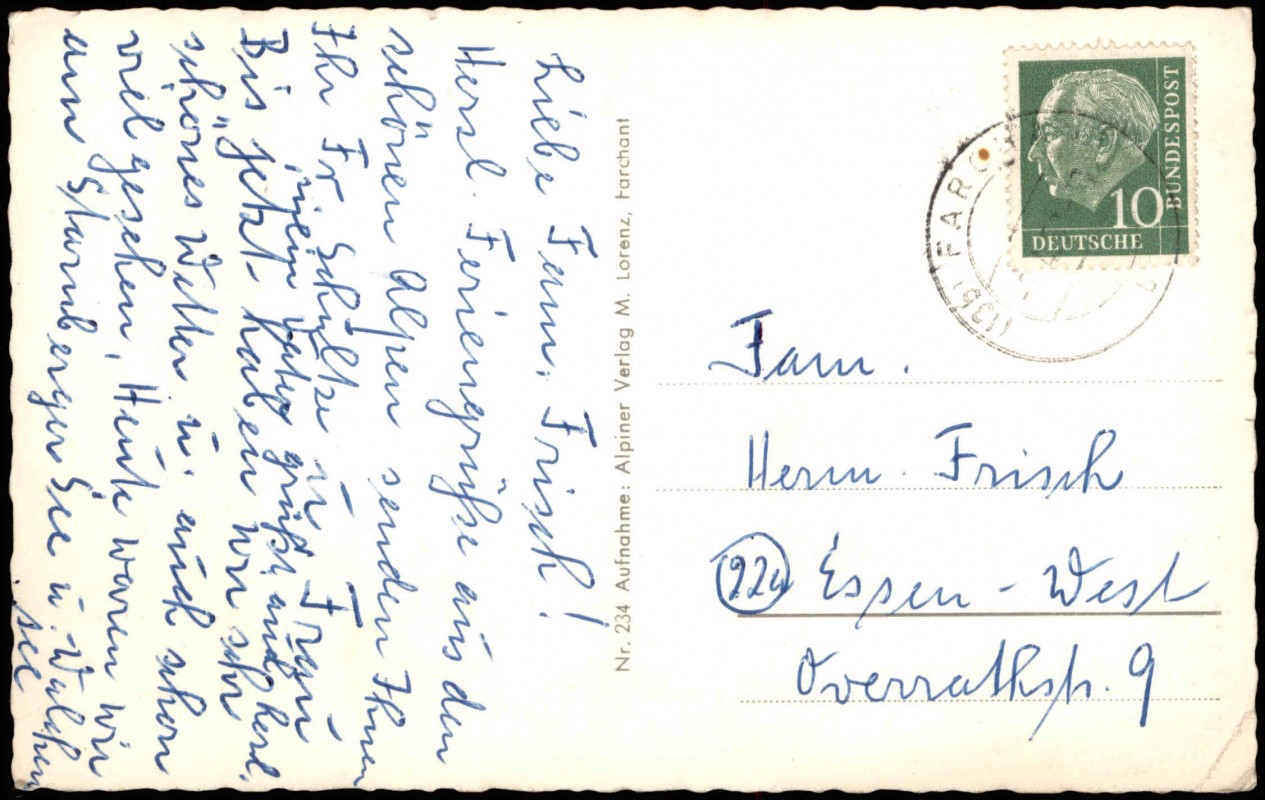 Liebe Fam. Frisch!
Herzl. Feriengrüße aus den
schönen Alpen senden Ihnen
Ihr Fr. Schultze u. Frau
mein Vater grüßt auch herzl.
Bis jetzt haben wir sehr
schönes Wetter u. auch schon
viel gesehen, Heute waren wir
am Starnberger See u. Walchen
see
Nr. 234 Aufnahme: Alpiner Verlag M. Lorenz, Farchant
BUNDESPOST
10
DEUTSCHE
(13b) FARCH
Fam.
Herm. Frisch
22a Essen-West
Overrathstr. 9